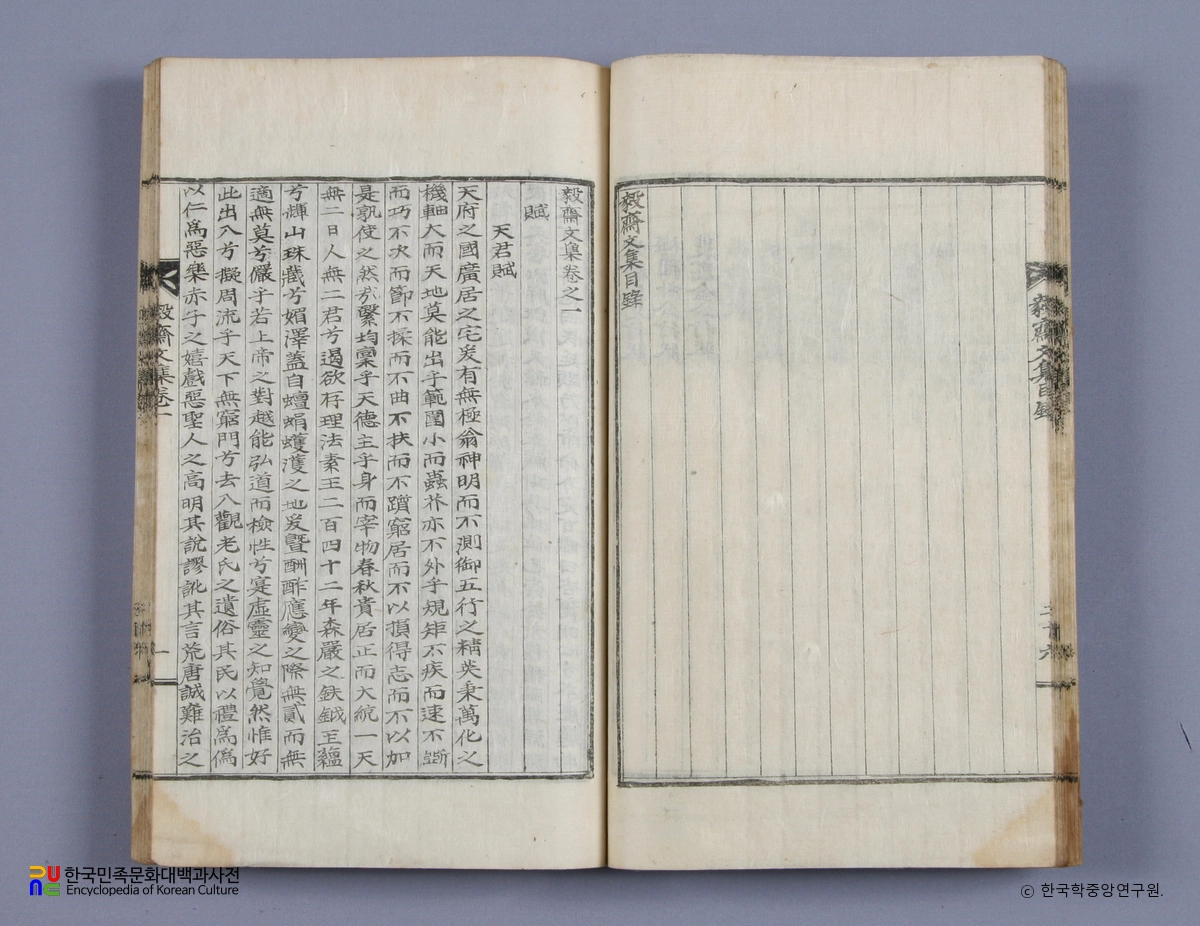 毅齋文集目錄
二十六
毅齋文集目錄
毅齋文集卷之一
賦
天君賦
天府之國廣居之宅爰有無極翁神明而不測御五行之精英秉萬化之
機軸大而天地莫能出乎範圍小而蟲芥亦不外乎規矩不疾而速不斲
而巧不次而節不揉而不曲不扶而不躓窮居而不以損得志而不以加
是孰使之然於繄均稟乎天德主乎身而宰物春秋貴居正而大統一天
無二日人無二君兮遏欲存理法素王二百四十二年森嚴之鈇鉞玉韞
兮輝山珠藏兮媚澤蓋自蟺蜎蠖濩之地爰曁酬酢應變之際無貳而無
適無莫兮儼乎若上帝之對越能弘道而檢性兮寔虛靈之知覺然惟好
此出入兮擬周流乎天下無窮門兮去入觀老氏之遺俗其民以禮爲僞
以仁爲惡樂赤子之嬉戲惡聖人之高明其說謬訛其言荒唐誠難治之
毅齋文集卷一
一
한국민족문화대백과사전
Encyclopedia of Korean Culture
ⓒ 한국학중앙연구원.